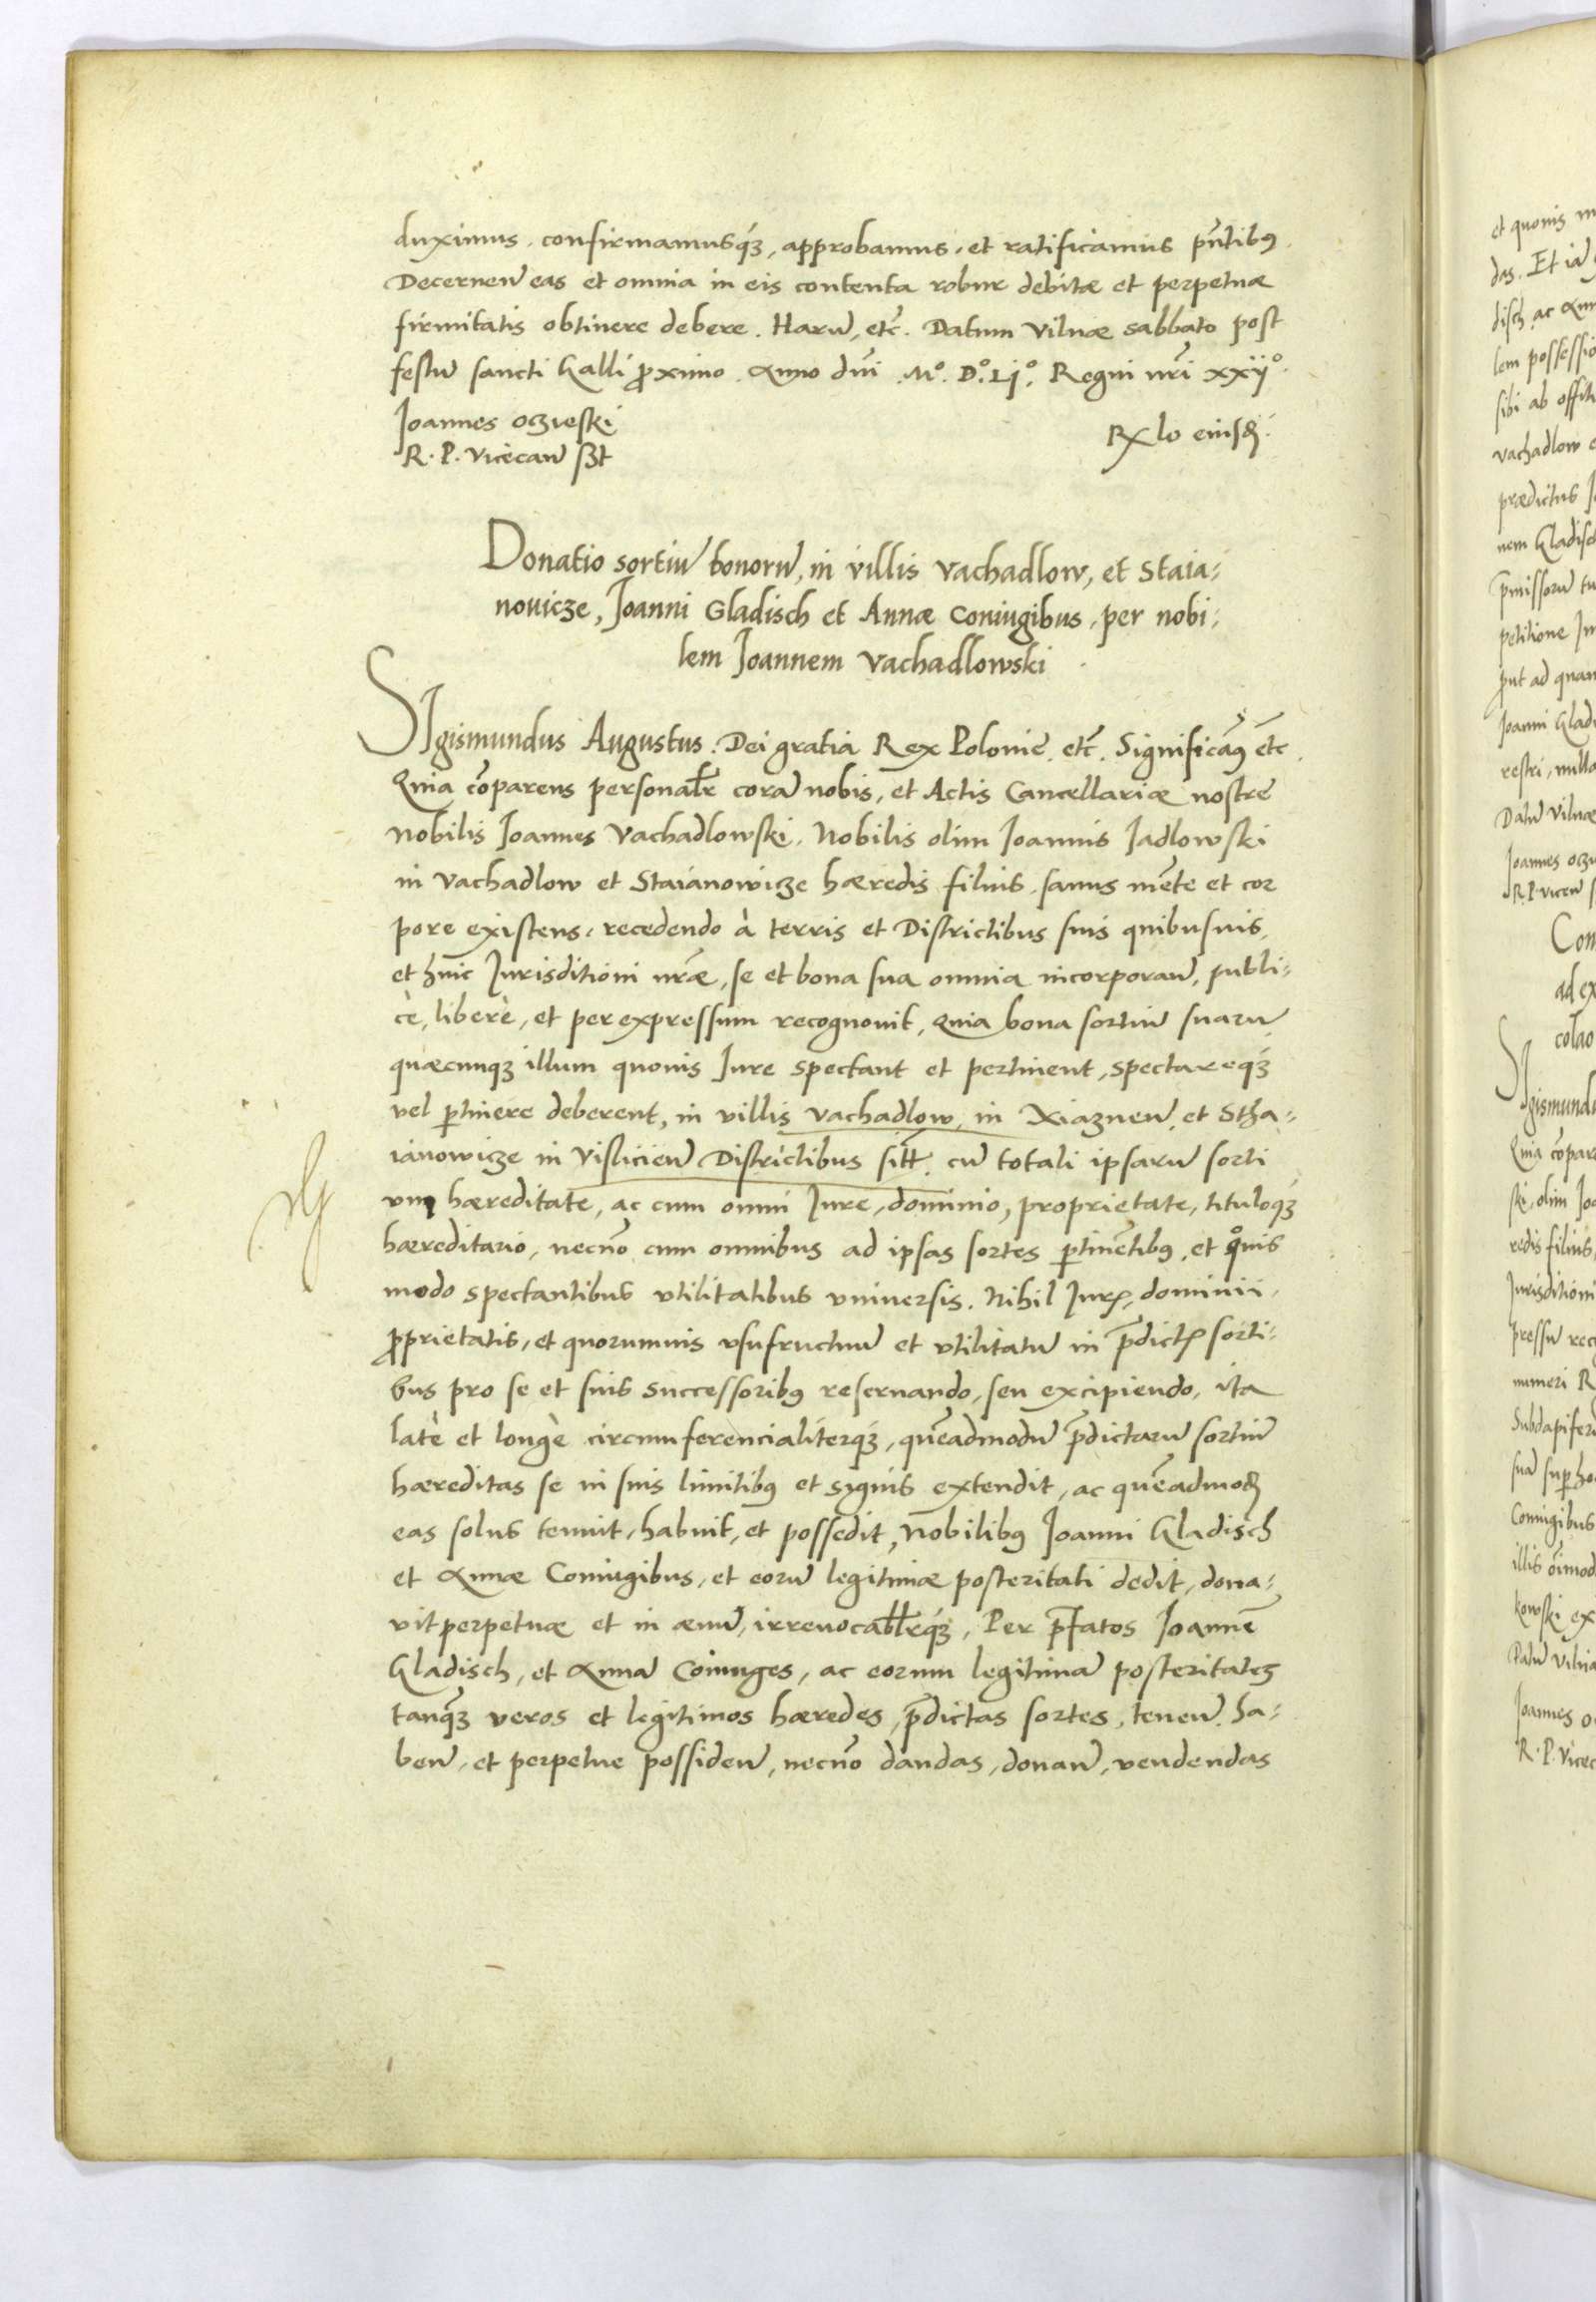 duximus. confirmamusq́ʒ, approbamus, et ratificamus pñtibꝰ.
Decernen̄ eas et omnia in eis contenta robur debitæ et perpetuæ
firmitatis obtinere debere. Harū, etc̄. Datum Vilnæ sabbato post
festū sancti Galli ꝓximo. Anno dñi .Mº. Dº. Ljº. Regni nr̃i xxijº.
Joannes oczieski
R. P. Vicecan̄ sßt
Rlo eiusđ.
Donatio sortiū bonorū, in villis Vachadlow, et Staia-
nouicze, Joanni Gladisch et Annæ Coniugibus, per nobi-
lem Joannem Vachadlowski
SIgismundus Augustus. Dei gratia Rex Polonie. etc̄. Significam̄ꝰ etc̄.
Quia cōparens personalr̃ corā nobis, et Actis Cancellariæ nostre
Nobilis Joannes Vachadlowski. Nobilis olim Joannis Jadlowski
in Vachadlow et Staianowicze hæredis filius. sanus mēte et cor
pore existens, recedendo à terris et Districtibus suis quibusuis,
et huic Jurisditioni nr̃æ, se et bona sua omnia incorporan̄, publi-
cè, liberè, et per expressum recognouit, Quia bona sortiū suarū
quæcunqʒ illum quouis Jure spectant et pertinent, spectareq́ʒ
vel ꝑtinere deberent, in villis Vachadlow, in Xiaznen̄. et Stha-
ianowicze in Visliciēn̄ Districtibus sitt̄. cū totali ipsarū sorti
vm hæreditate, ac cum omni Jure, dominio, proprietate, tituloq́ʒ
hæreditario, necnō cum omnibus ad ipsas sortes ꝑtinētibꝰ, et qͦuis
modo spectantibus vtilitatibus vniuersis. Nihil Jurꝭ, dominii,
ꝓprietatis, et quorumuis vsufructuū et vtilitatū in p̄dictꝭ sorti-
bus pro se et suis successoribꝰ reseruando, seu excipiendo, ita
latè et longè circumferencialiterq́ʒ, quēadmodū p̄dictarū sortiū
hæreditas se in suis limitibꝰ et signis extendit, ac quēadmođ
eas solus tenuit, habuit, et possedit, Nobilibꝰ Joanni Gladisch
et Annæ Coniugibus, et eorū legitimæ posteritati dedit, dona-
vit perpetuæ et in æuū, irreuocablr̃q́ʒ, Per p̄fatos Joannē
Gladisch, et Annā Coniuges, ac eorum legitimā posteritateʒ
tanq̄ʒ veros et legitimos hæredes, p̄dictas sortes, tenen̄. ha-
ben̄, et perpetue possiden̄, necnō dandas, donan̄, vendendas